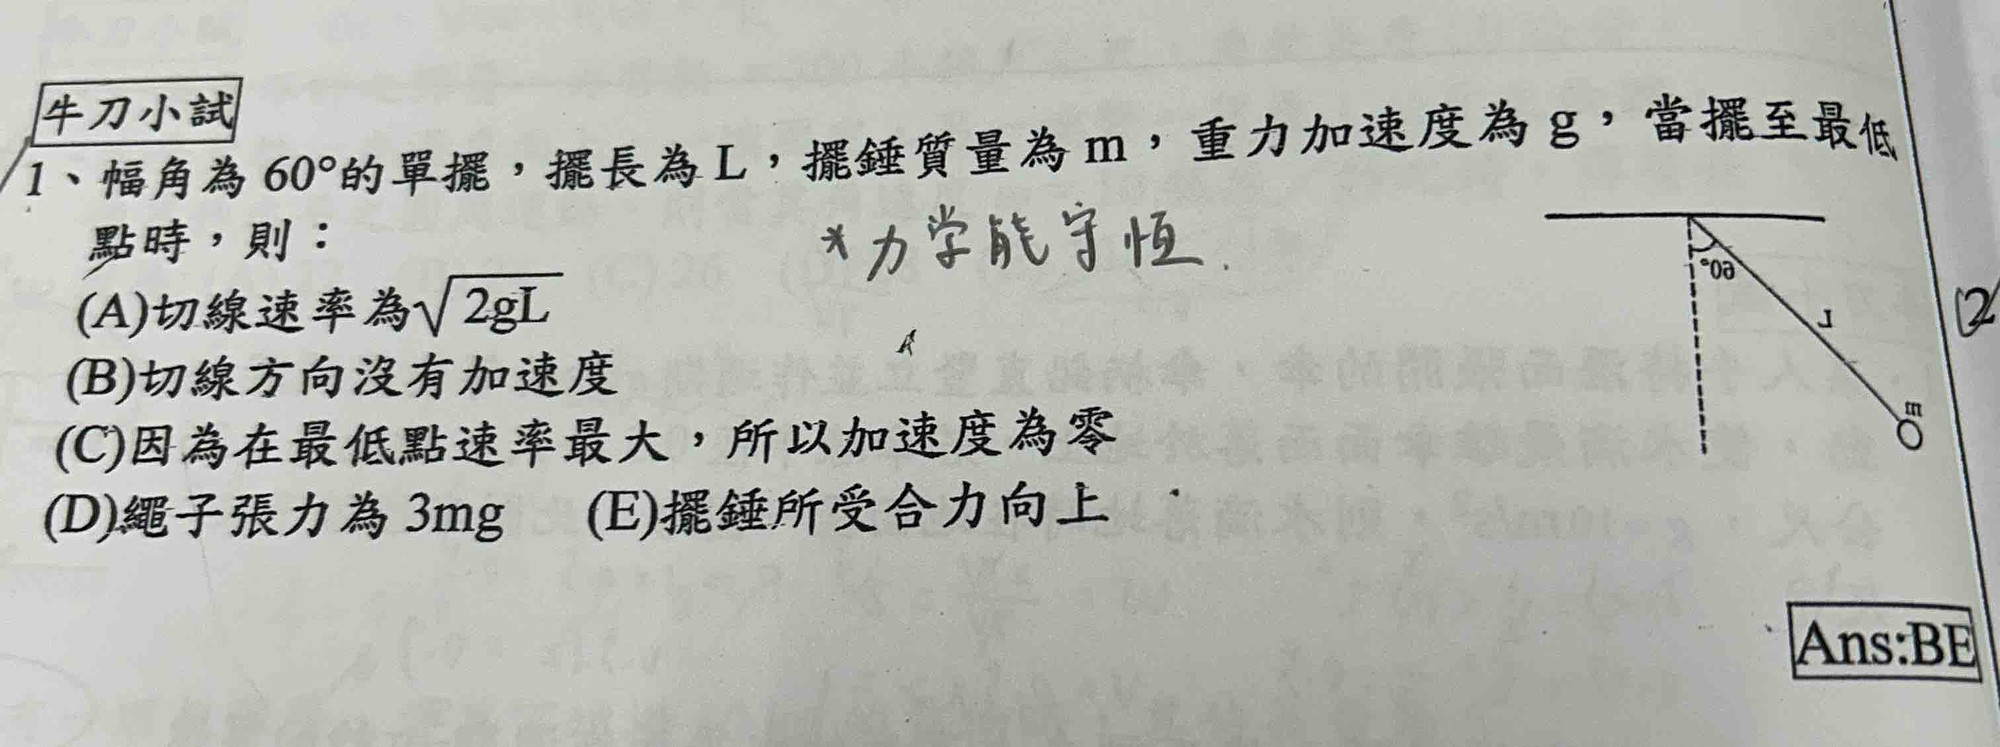 牛刀小試
1、幅角為 60°的單擺，擺長為 L，擺錘質量為 m，重力加速度為 g，當擺至最低
點時，則：
*力学能守恒.
(A)切線速率為√2gL
(B)切線方向沒有加速度
(C)因為在最低點速率最大，所以加速度為零
(D)繩子張力為 3mg (E)擺錘所受合力向上
60°
L
m
(2
Ans:BE